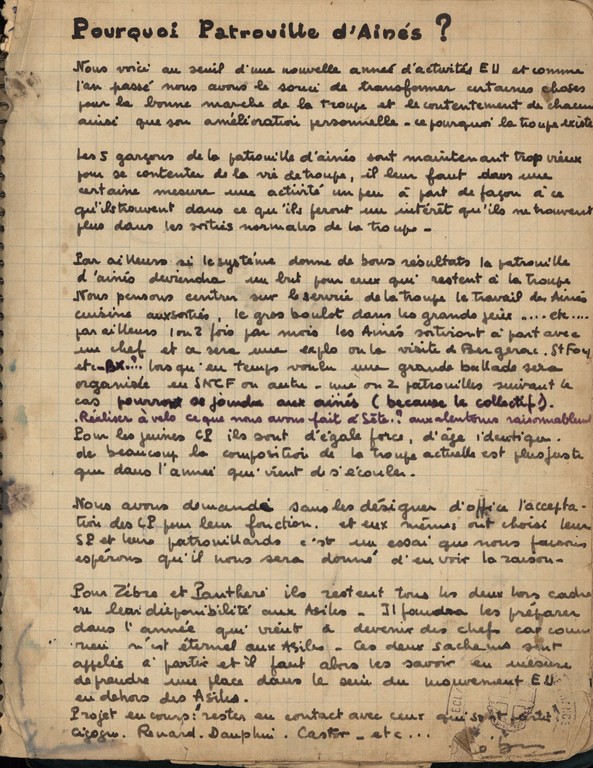 Pourquoi Patrouille d'Ainés ?
Nous voici au seuil d'une nouvelle année d'activités EU et comme
l'an passé nous avons le souci de transformer certaines choses
pour la bonne marche de la troupe et le contentement de chacun
ainsi que son amélioration personnelle - ce pourquoi la troupe existe
Les 5 garçons de la patrouille d'ainés sont maintenant trop vieux
pour se contenter de la vie de troupe, il leur faut dans une
certaine mesure une activité un peu à part de façon à ce
qu'ils trouvent dans ce qu'ils feront un intérêt qu'ils ne trouvent
plus dans les sorties normales de la troupe -
Par ailleurs si le système donne de bons résultats la patrouille
d'ainés deviendra un but pour ceux qui restent à la troupe
Nous pensons centrer sur le service de la troupe le travail des Ainés
cuisine aux sorties, le gros boulot dans les grands jeux .... etc ....
par ailleurs 1 ou 2 fois par mois les Ainés sortiront à part avec
un chef et ce sera une explo ou la visite de Bergerac. St Foy
etc - BX...? lorsqu'en temps voulu une grande ballade sera
organisée en SNCF ou autre - une ou 2 patrouilles suivant le
cas pourront se joindre aux ainés (because le collectif).
Réaliser à vélo ce que nous avons fait à Sète..? aux alentours raisonnablement
Pour les jeunes CP ils sont d'égale force, d'âge identique.
de beaucoup la composition de la troupe actuelle est plus juste
que dans l'année qui vient de s'écouler.
Nous avons demandé sans les désigner d'office l'accepta-
tion des CP pour leur fonction. et eux mêmes ont choisi leur
SP et leurs patrouillards c'est un essai que nous faisons
espérons qu'il nous sera donné d'en voir la raison -
Pour Zèbre et Panthère ils restent tous les deux hors cadre
vu leur disponibilité aux Asiles - Il faudra les préparer
dans l'année qui vient à devenir des chefs car
rien n'est éternel aux Asiles - Ces deux sachems sont
appelés à partir et il faut alors les savoir en mesure
de prendre une place dans le sein du mouvement EU
en dehors des Asiles.
Projet en cours : rester en contact avec ceux qui sont partis
Cigogne. Renard. Dauphin. Castor - etc ...